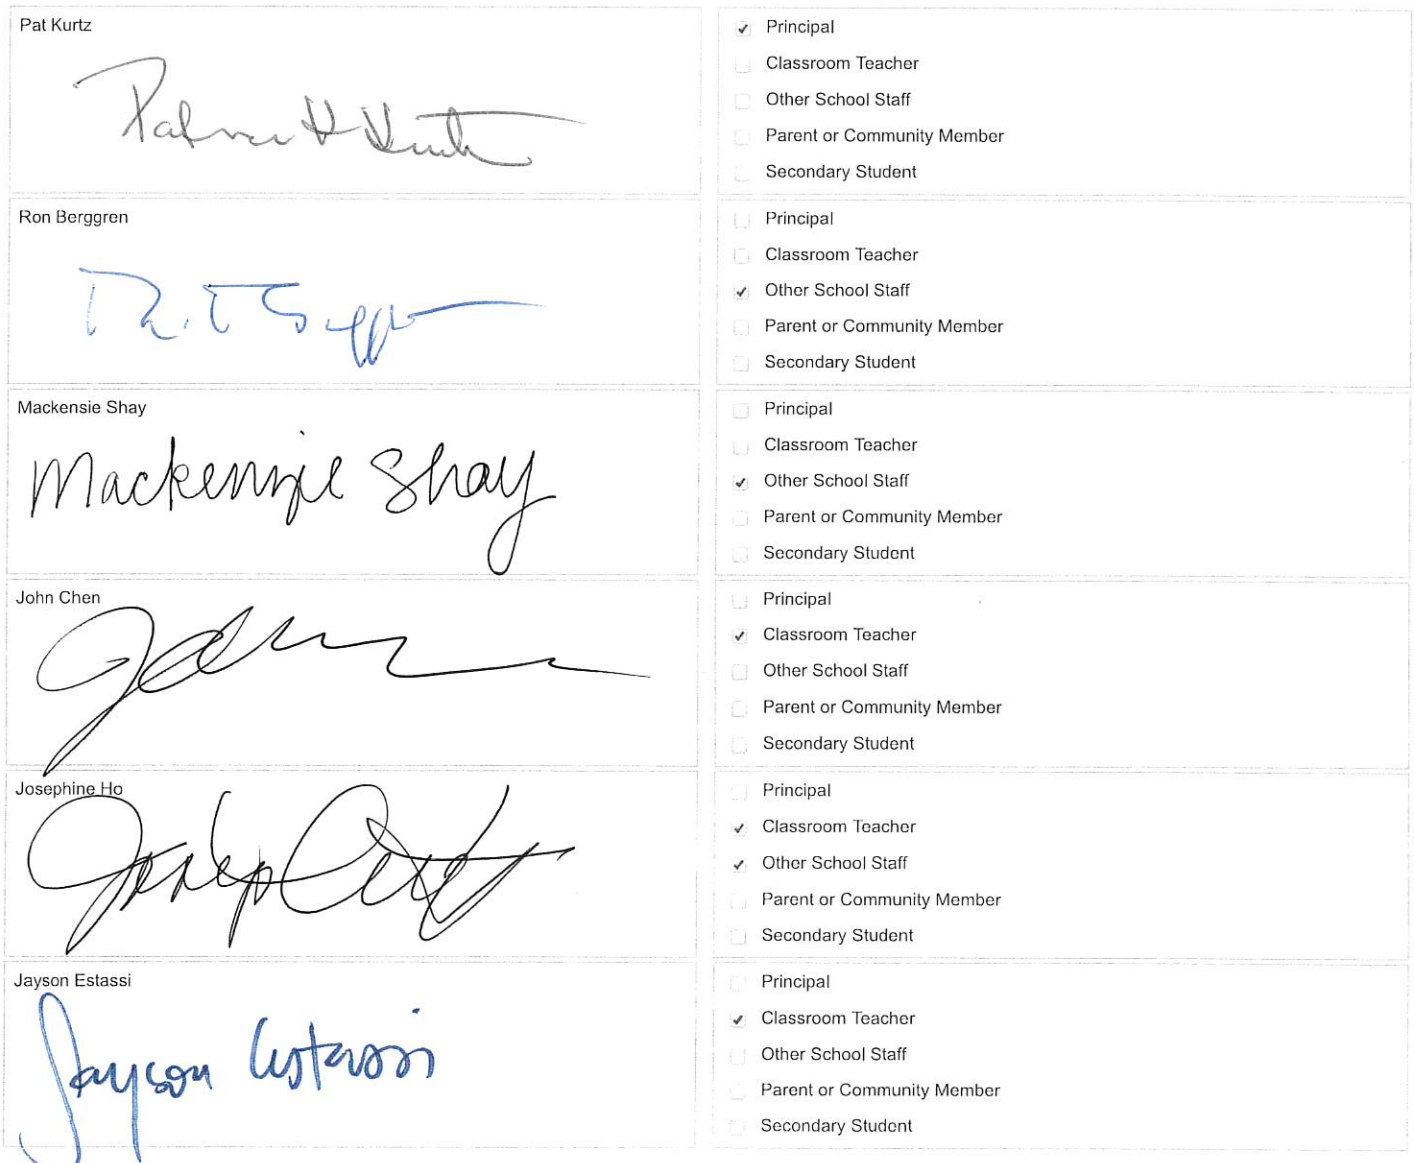 Pat Kurtz
Principal
Classroom Teacher
Other School Staff
Parent or Community Member
Secondary Student
Ron Berggren
Principal
Classroom Teacher
Other School Staff
Parent or Community Member
Secondary Student
Mackensie Shay
Mackenzie Shay
Principal
Classroom Teacher
Other School Staff
Parent or Community Member
Secondary Student
John Chen
Principal
Classroom Teacher
Other School Staff
Parent or Community Member
Secondary Student
Josephine Ho
Principal
Classroom Teacher
Other School Staff
Parent or Community Member
Secondary Student
Jayson Estassi
Jayson Estassi
Principal
Classroom Teacher
Other School Staff
Parent or Community Member
Secondary Student